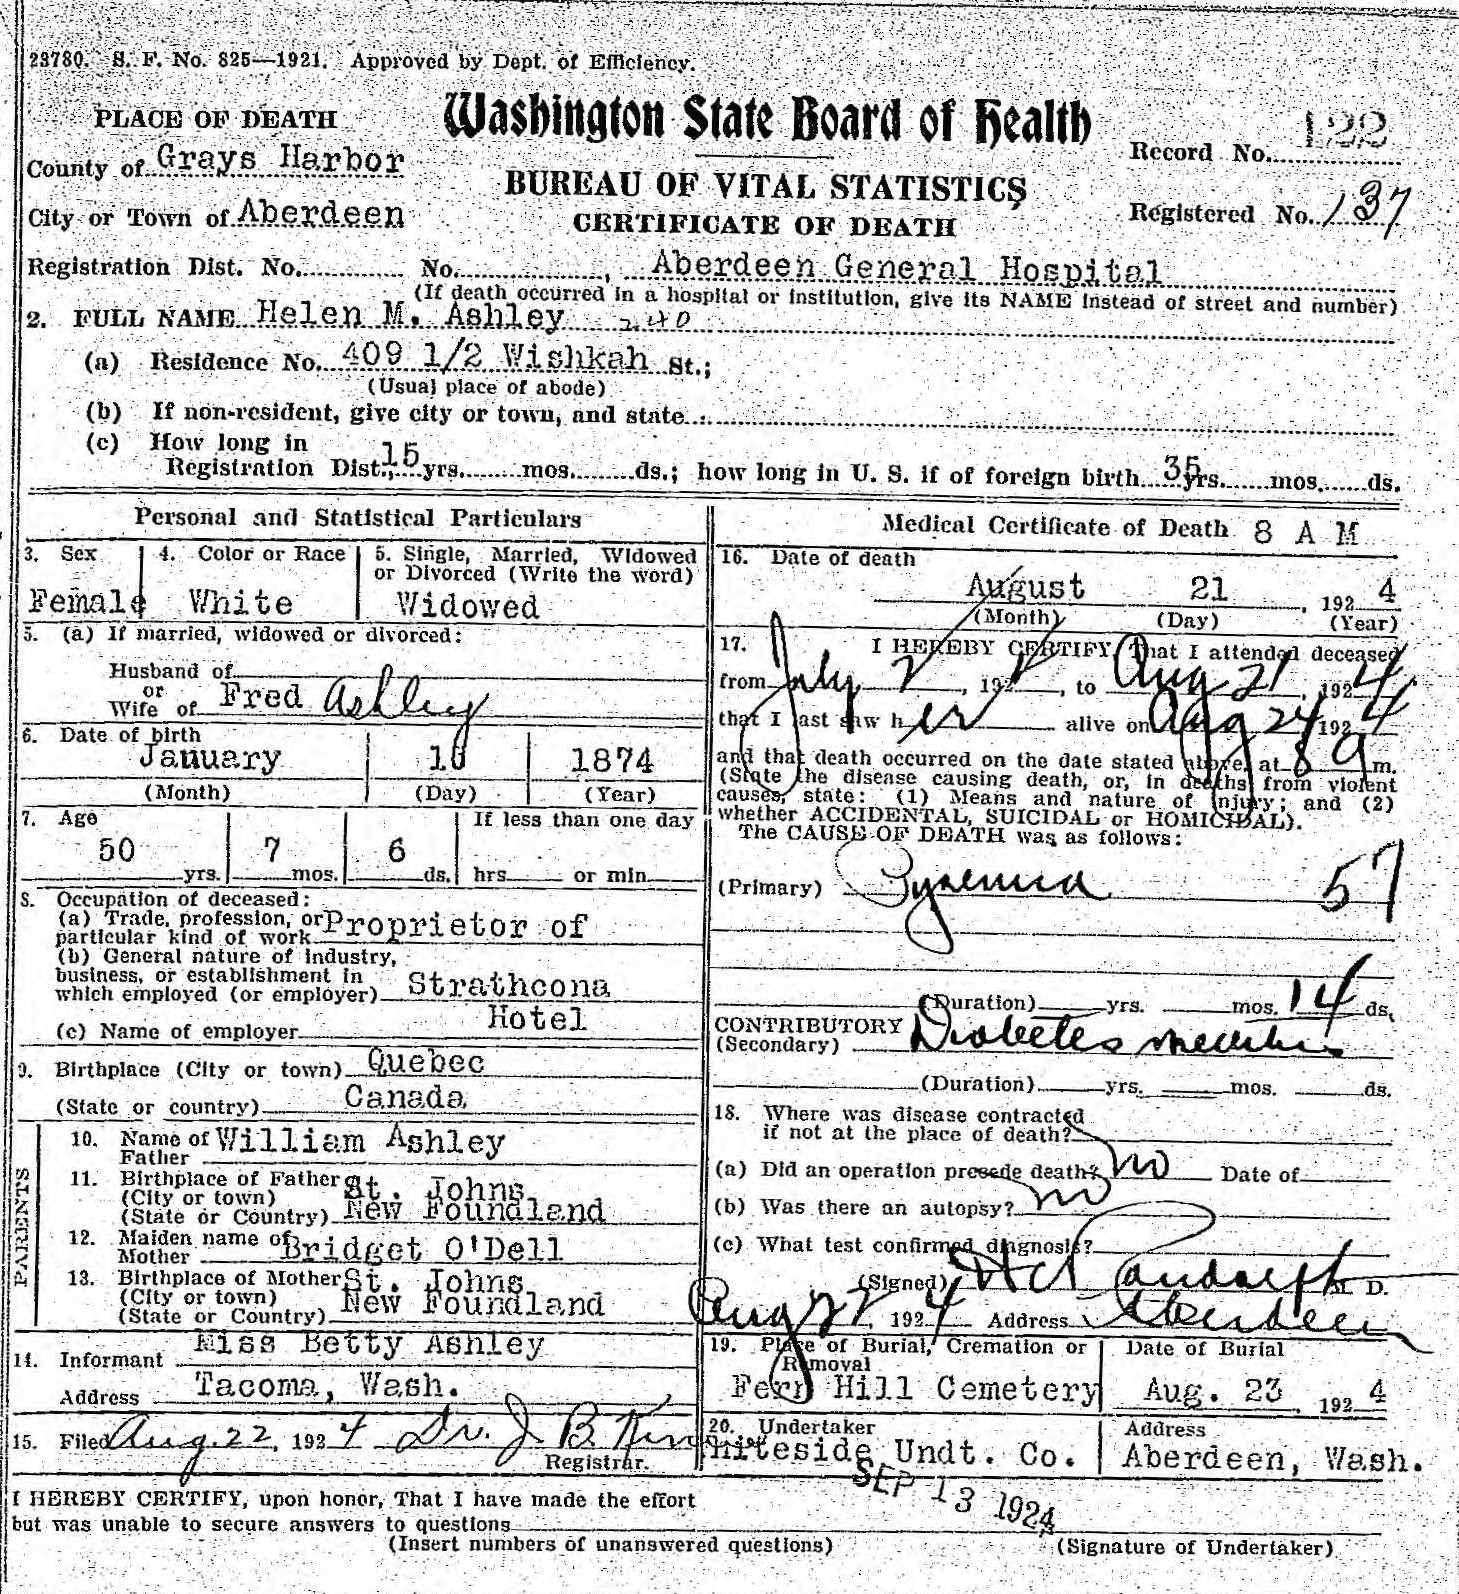 23780. S. F. No. 825—1921. Approved by Dept. of Efficiency.
Washington State Board of Health
PLACE OF DEATH
County of Grays Harbor
Record No. 122
BUREAU OF VITAL STATISTICS
City or Town of Aberdeen
CERTIFICATE OF DEATH
Registered No. 137
Registration Dist. No. No. , Aberdeen General Hospital
(If death occurred in a hospital or institution, give its NAME instead of street and number)
2. FULL NAME Helen M. Ashley 240
(a) Residence No. 409 1/2 Wishkah St.;
(Usual place of abode)
(b) If non-resident, give city or town, and state
(c) How long in
Registration Dist.; 15 yrs. mos. ds.; how long in U. S. if of foreign birth 35 yrs. mos. ds.
Personal and Statistical Particulars
3. Sex
Female
4. Color or Race
White
5. Single, Married, Widowed
or Divorced (Write the word)
Widowed
5. (a) If married, widowed or divorced:
Husband of
or
Wife of Fred Ashley
6. Date of birth
January 1874
(Month) (Day) (Year)
7. Age If less than one day
50 yrs. 7 mos. 6 ds. hrs. or min.
8. Occupation of deceased:
(a) Trade, profession, or
particular kind of work Proprietor of
(b) General nature of industry,
business, or establishment in
which employed (or employer) Strathcona
Hotel
(c) Name of employer
9. Birthplace (City or town) Quebec
(State or country) Canada
PARENTS
10. Name of
Father William Ashley
11. Birthplace of Father
(City or town) St. Johns
(State or Country) New Foundland
12. Maiden name of
Mother Bridget O'Dell
13. Birthplace of Mother
(City or town) St. Johns
(State or Country) New Foundland
14. Informant Miss Betty Ashley
Address Tacoma, Wash.
15. Filed Aug. 22, 1924 Dr. J B.
Registrar.
Medical Certificate of Death 8 A M
16. Date of death
August 21, 1924
(Month) (Day) (Year)
17. I HEREBY CERTIFY, That I attended deceased
from July 2, 192 , to Aug 21, 1924
that I last saw her alive on Aug 1924
and that death occurred on the date stated above, at 8 a m.
(State the disease causing death, or, in deaths from violent
causes, state: (1) Means and nature of injury; and (2)
whether ACCIDENTAL, SUICIDAL or HOMICIDAL).
The CAUSE OF DEATH was as follows:
(Primary) 57
(Duration) yrs. mos. 14 ds.
CONTRIBUTORY
(Secondary) Diabetes mellitus
(Duration) yrs. mos. ds.
18. Where was disease contracted
if not at the place of death?
(a) Did an operation precede death? no Date of
(b) Was there an autopsy? no
(c) What test confirmed diagnosis?
(Signed) Randolph M. D.
Aug 22, 1924 Address Aberdeen
19. Place of Burial, Cremation or
Removal
Fern Hill Cemetery
Date of Burial
Aug. 23, 1924
20. Undertaker
Whiteside Undt. Co.
Address
Aberdeen, Wash.
SEP 13 1924
I HEREBY CERTIFY, upon honor, That I have made the effort
but was unable to secure answers to questions
(Insert numbers of unanswered questions) (Signature of Undertaker)